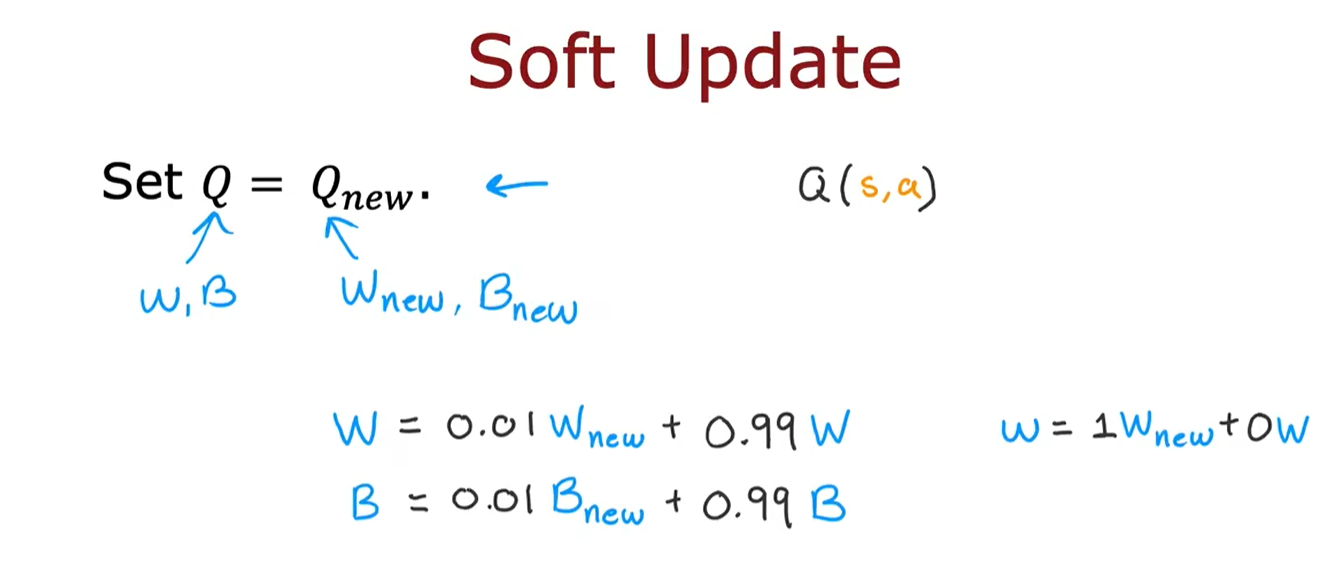 Soft Update
Set Q = Qnew. ← Q(s,a)
W,B Wnew, Bnew
W = 0.01 Wnew + 0.99 W W = 1Wnew+0W
B = 0.01 Bnew + 0.99 B